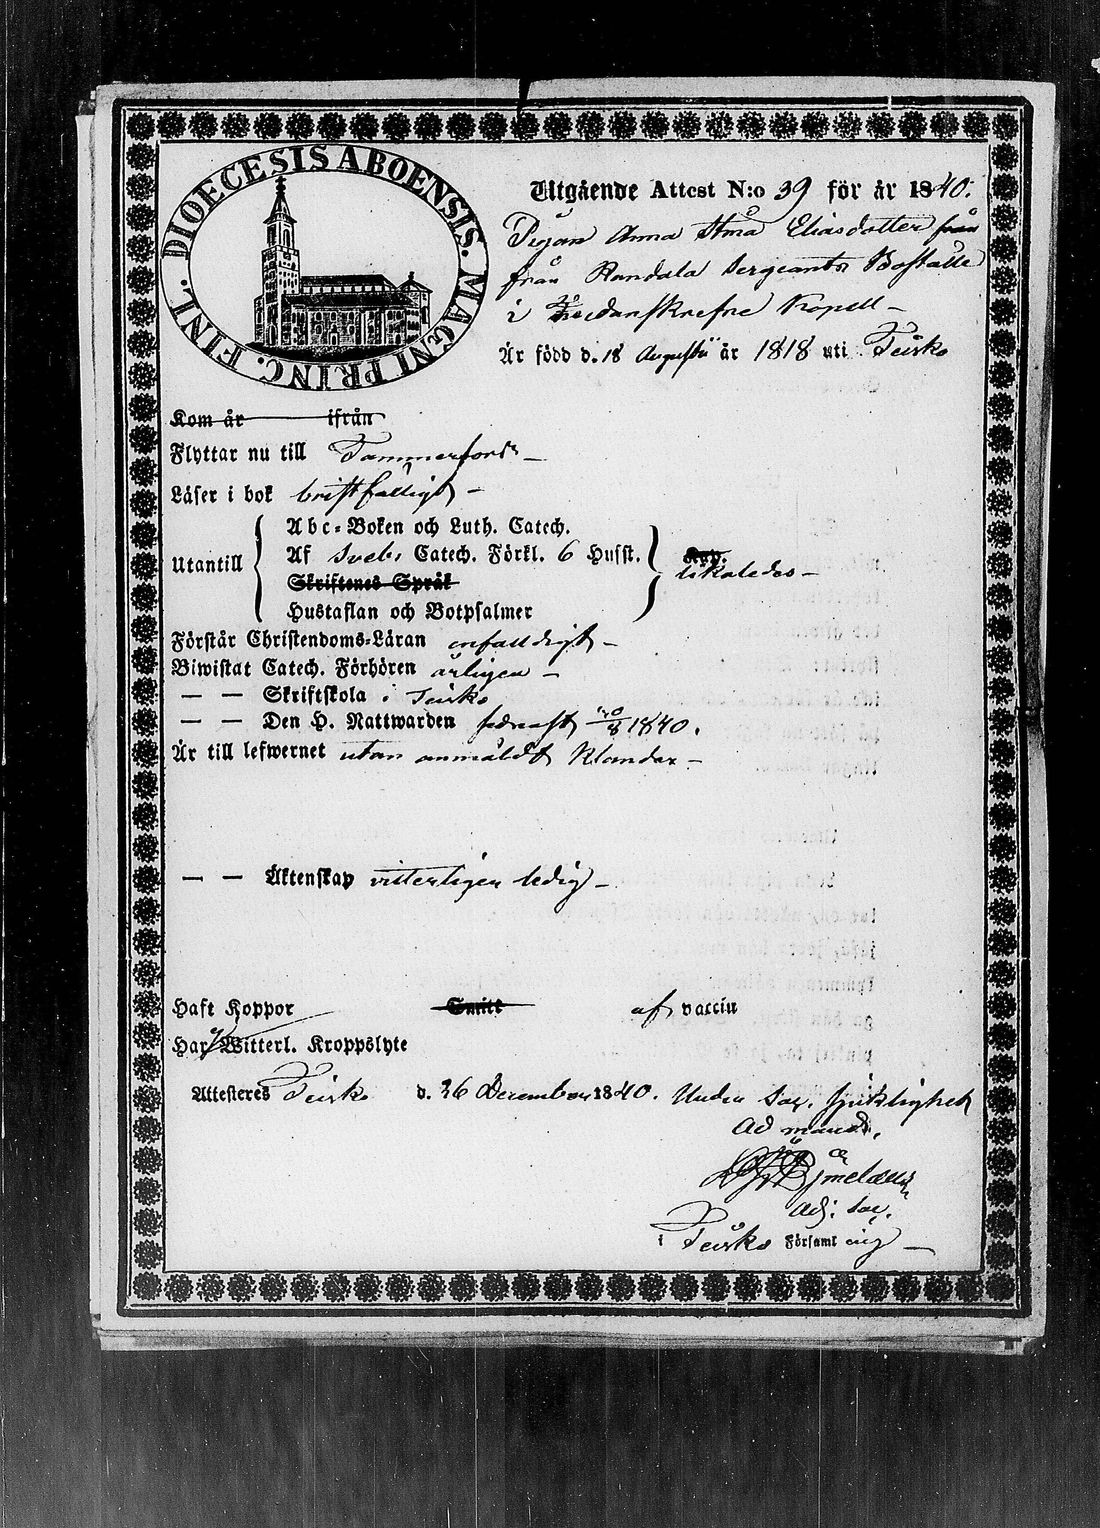 DIOECESIS ABOENSIS. MAGNI PRINC. FINL.
Utgående Attest N:o 39 för år 1840.
Pigan Anna Stina Eliasdotter från
från Randala Sergeants Boställe
i Kapell –
Är född d. 18 Augusti år 1818 uti Teisko
Kom år ifrån
Flyttar nu till Tammerfors –
Läser i bok bristfälligt –
Utantill
Abc-Boken och Luth. Catech.
Af Sveb. Catech. Förkl. 6 Hufst.
Skriftenes Språk
Hustaflan och Botpsalmer
likaledes –
Förstår Christendoms-Läran enfaldigt –
Biwistat Catech. Förhören årligen –
— — Skriftskola i Teisko
— — Den H. Nattwarden senast /8 1840.
Är till lefwernet utan anmäldt klander –
— — Äktenskap vitterligen ledig –
Haft Koppor af vaccin
Har Witterl. Kroppslyte
Attesteres Teisko d. 26 December 1840. Under Sac.
Ad mand.
Adj. Sac.
i Teisko Församling –